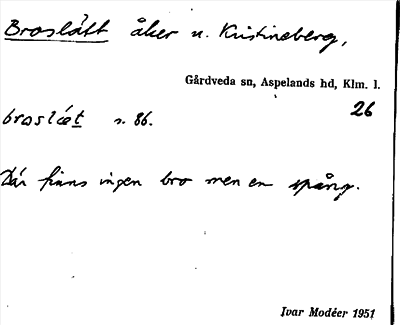 Broslått åker u. Kristineberg,
Gårdveda sn, Aspelands hd, Klm. l.
26
broslæt s. 86.
Där finns ingen bro men en spång.
Ivar Modéer 1951